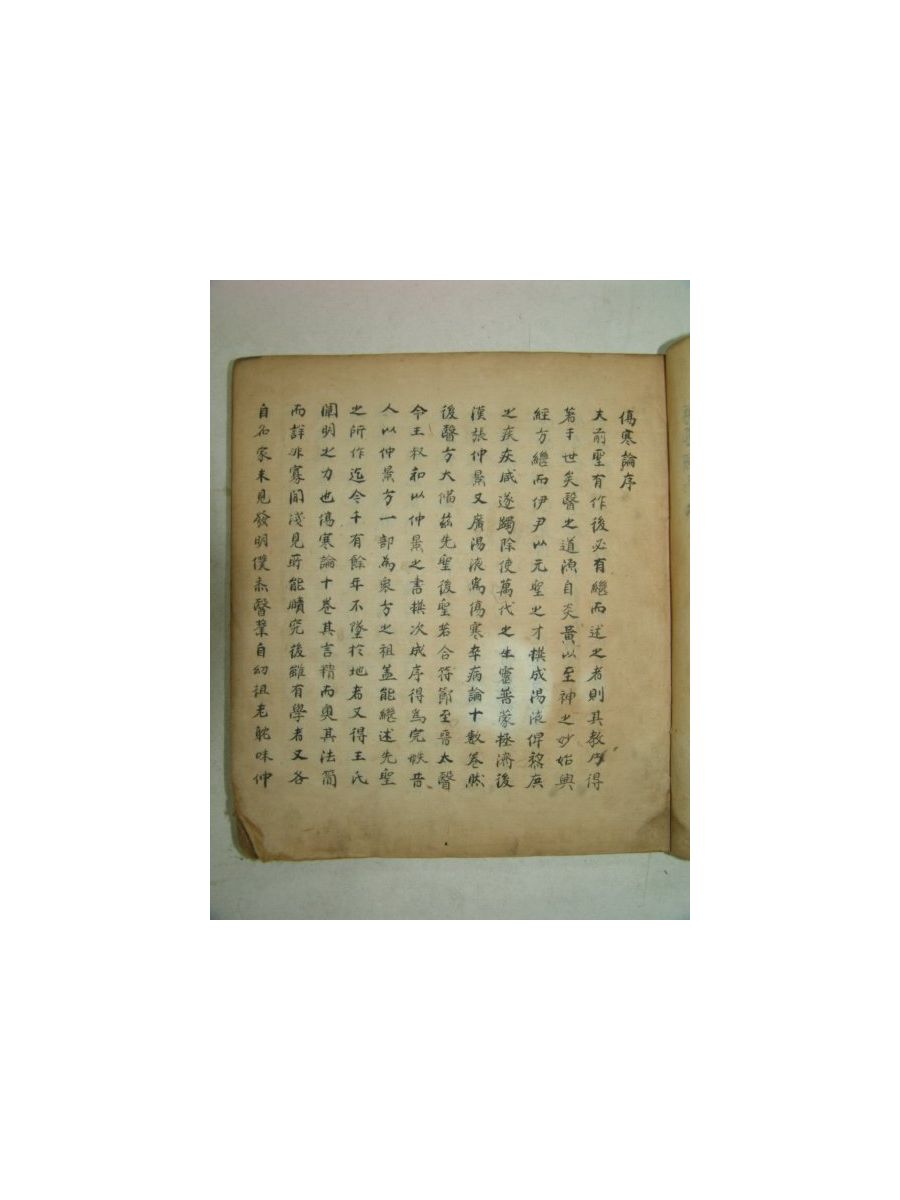 傷寒論序
夫前聖有作後必有繼而述之者則其教乃得
著于世矣醫之道源自炎黃以至神之妙始興
經方繼而伊尹以元聖之才撰成湯液俾黎庶
之疾疢咸遂蠲除使萬代之生靈普蒙拯濟後
漢張仲景又廣湯液爲傷寒卒病論十數卷然
後醫方大備茲先聖後聖若合符節至晉太醫
令王叔和以仲景之書撰次成序得爲完帙昔
人以仲景方一部為衆方之祖盖能繼述先聖
之所作迄今千有餘年不墜於地者又得王氏
闡明之力也傷寒論十卷其言精而奧其法簡
而詳非寡聞淺見所能賾究後雖有學者又各
自名家未見發明僕忝醫業自幼祖老耽味仲